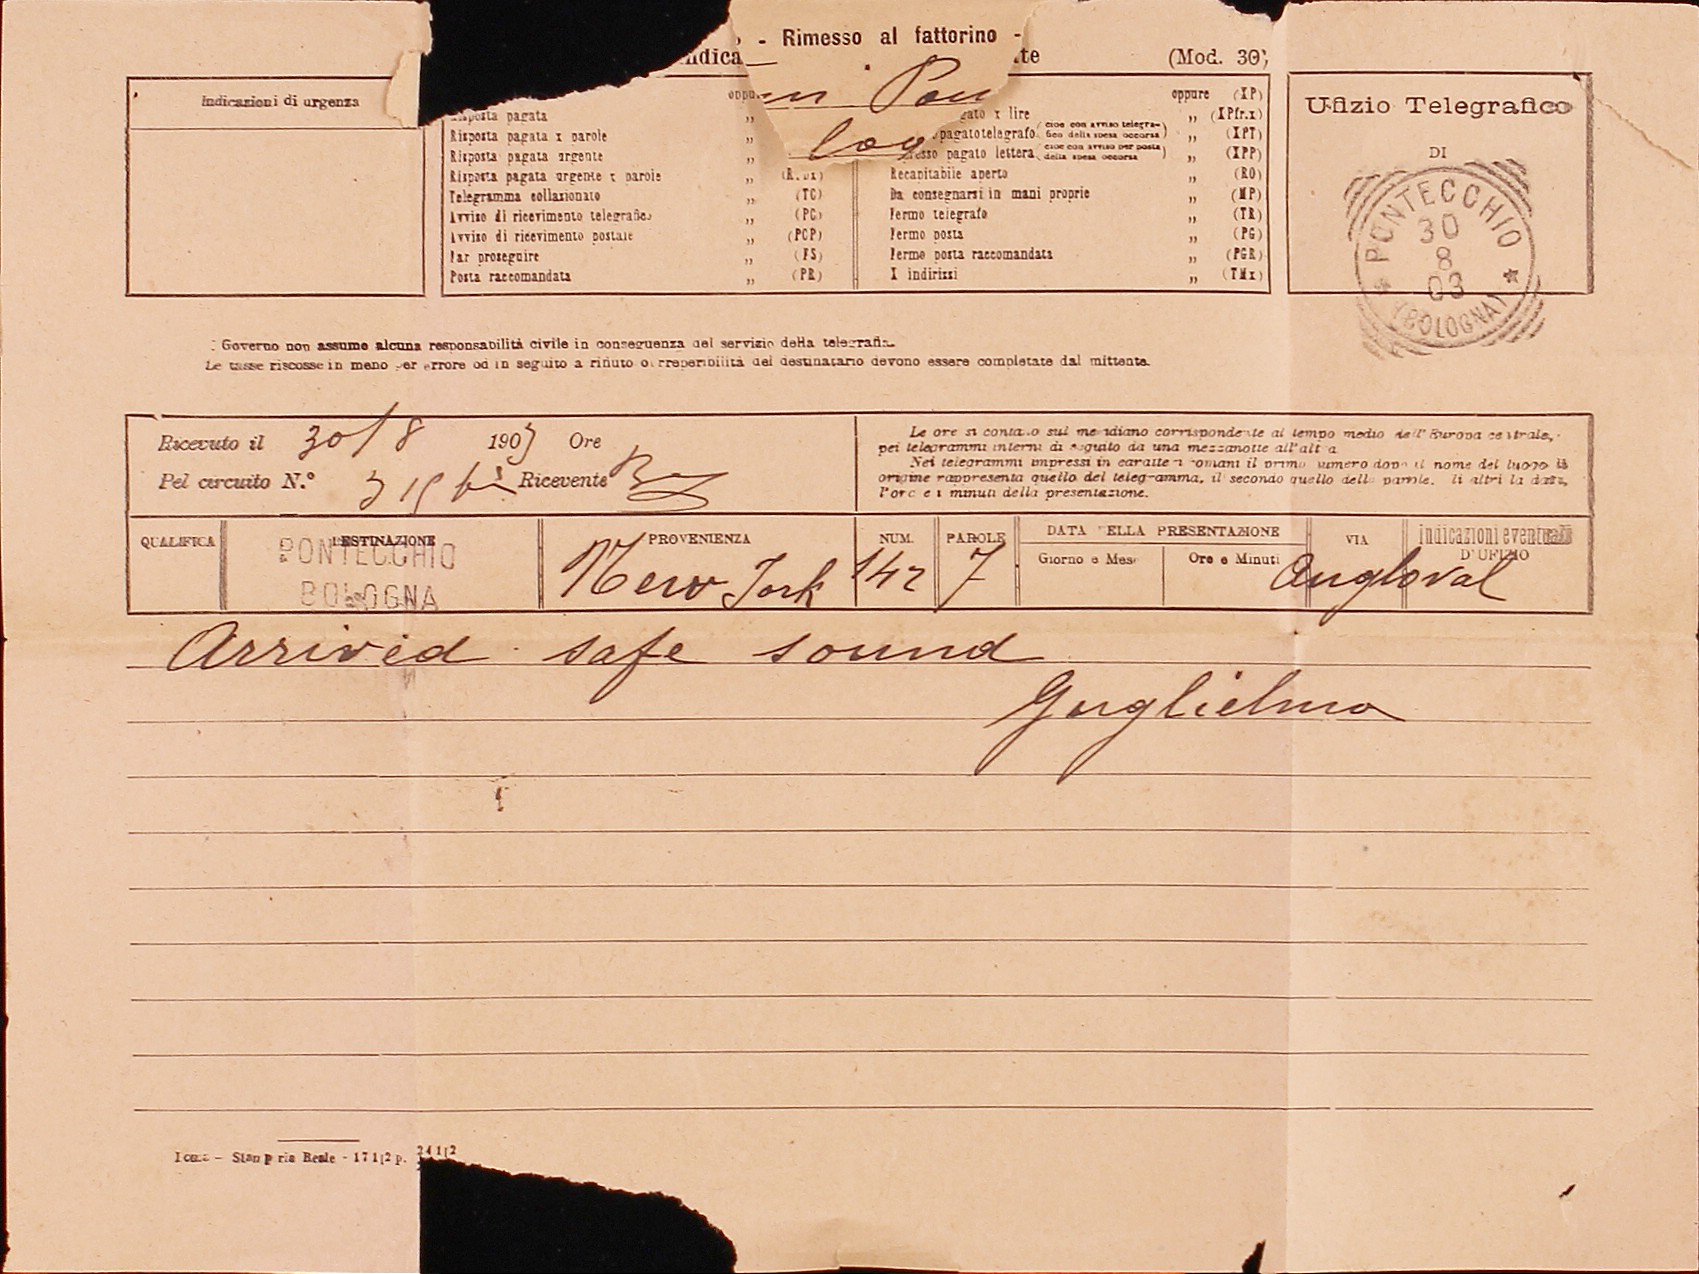 - Rimesso al fattorino -
(Mod. 30)
Indicazioni di urgenza
Risposta pagata „
Risposta pagata x parole „
Risposta pagata urgente „
Risposta pagata urgente x parole „
Telegramma collazionato „ (TC)
Avviso di ricevimento telegrafico „ (PC)
Avviso di ricevimento postale „ (PCP)
Far proseguire „ (FS)
Posta raccomandata „ (PR)
oppure (XP)
x lire „ (XPfr.x)
pagato telegrafo (cioè con avviso telegra-fico della spesa occorsa) „ (XPT)
pagato lettera (cioè con avviso per posta della spesa occorsa) „ (XPP)
Recapitabile aperto „ (RO)
Da consegnarsi in mani proprie „ (MP)
Fermo telegrafo „ (TR)
Fermo posta „ (PG)
Fermo posta raccomandata „ (PGR)
X indirizzi „ (TMx)
Ufizio Telegrafico
DI
PONTECCHIO
30
8
03
(BOLOGNA)
Governo non assume alcuna responsabilità civile in conseguenza del servizio della telegrafia.
Le tasse riscosse in meno per errore od in seguito a rifiuto o irreperibilità del destinatario devono essere completate dal mittente.
Ricevuto il 30/8 1903 Ore
Pel circuito N.° Ricevente
Le ore si contano sul meridiano corrispondente al tempo medio dell'Europa centrale,
pei telegrammi interni di seguito da una mezzanotte all'altra
Nei telegrammi impressi in caratteri romani il primo numero dopo il nome del luogo di
origine rappresenta quello del telegramma, il secondo quello delle parole, gli altri la data,
l'ora e i minuti della presentazione.
QUALIFICA
DESTINAZIONE
PONTECCHIO
BOLOGNA
PROVENIENZA
New York
NUM.
142
PAROLE
7
DATA DELLA PRESENTAZIONE
Giorno e Mese
Ore e Minuti
VIA
indicazioni eventuali
D'UFIZIO
Angloval
Arrived safe sound
Guglielmo